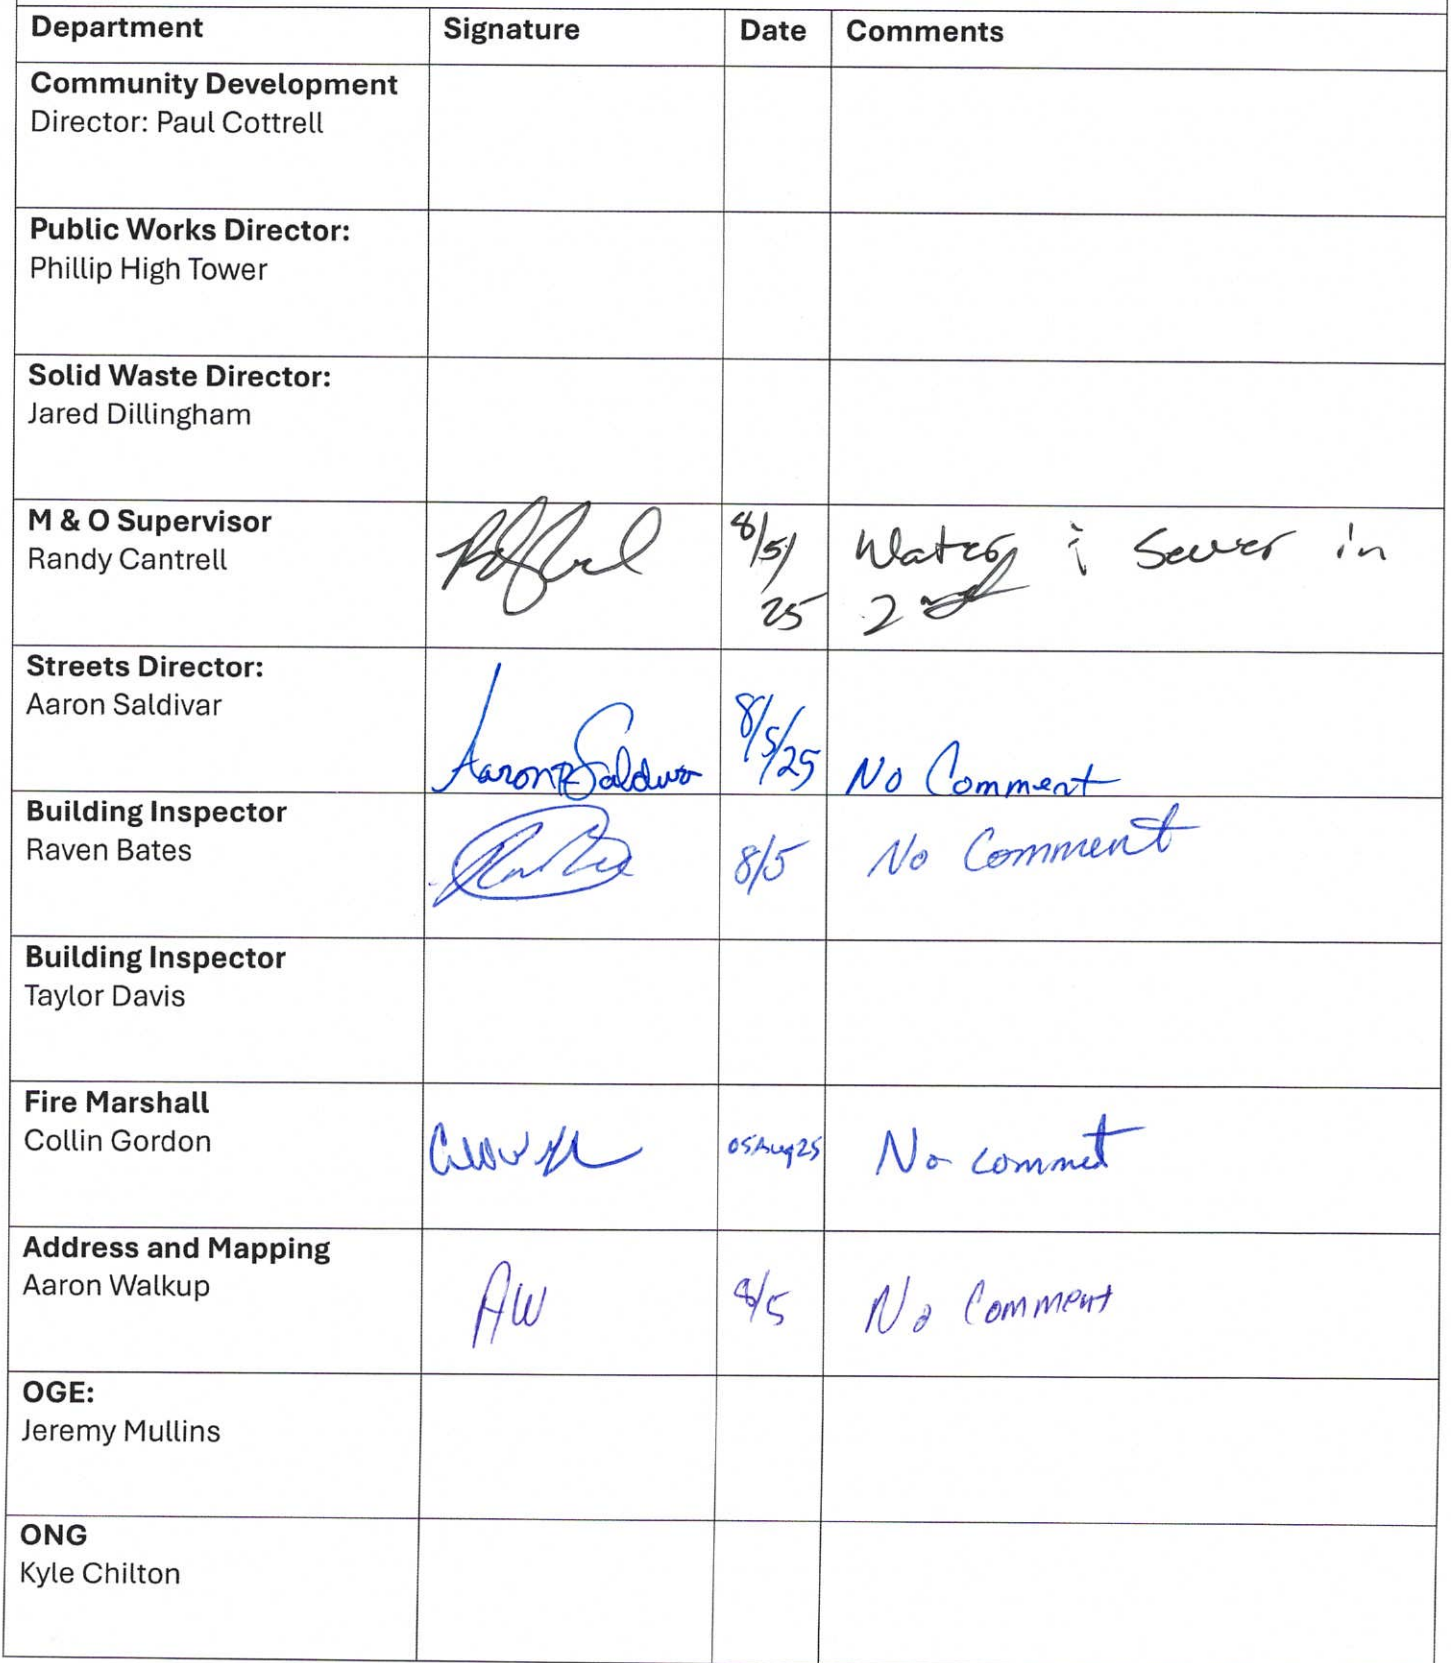 Department Signature Date Comments
Community Development
Director: Paul Cottrell
Public Works Director:
Phillip High Tower
Solid Waste Director:
Jared Dillingham
M & O Supervisor
Randy Cantrell
8/5/
25
Water & Sewer in
2nd
Streets Director:
Aaron Saldivar
Aaron Saldivar 8/5/25 No Comment
Building Inspector
Raven Bates
8/5 No Comment
Building Inspector
Taylor Davis
Fire Marshall
Collin Gordon
05Aug25 No commet
Address and Mapping
Aaron Walkup
AW 8/5 No Comment
OGE:
Jeremy Mullins
ONG
Kyle Chilton